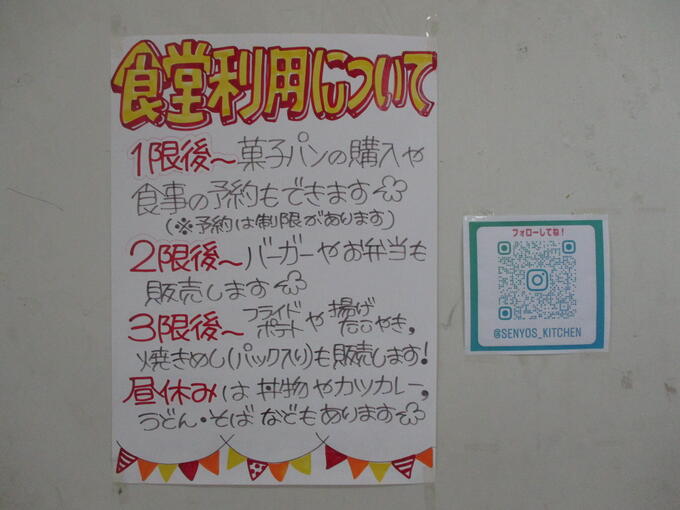 食堂利用について
1限後～菓子パンの購入や
食事の予約もできます
(※予約は制限があります)
2限後～バーガーやお弁当も
販売します
3限後～フライドポテトや揚げたこやき,
焼きめし(パック入り)も販売します!
昼休みは丼物やカツカレー,
うどん・そばなどもあります
フォローしてね!
@SENYOS_KITCHEN